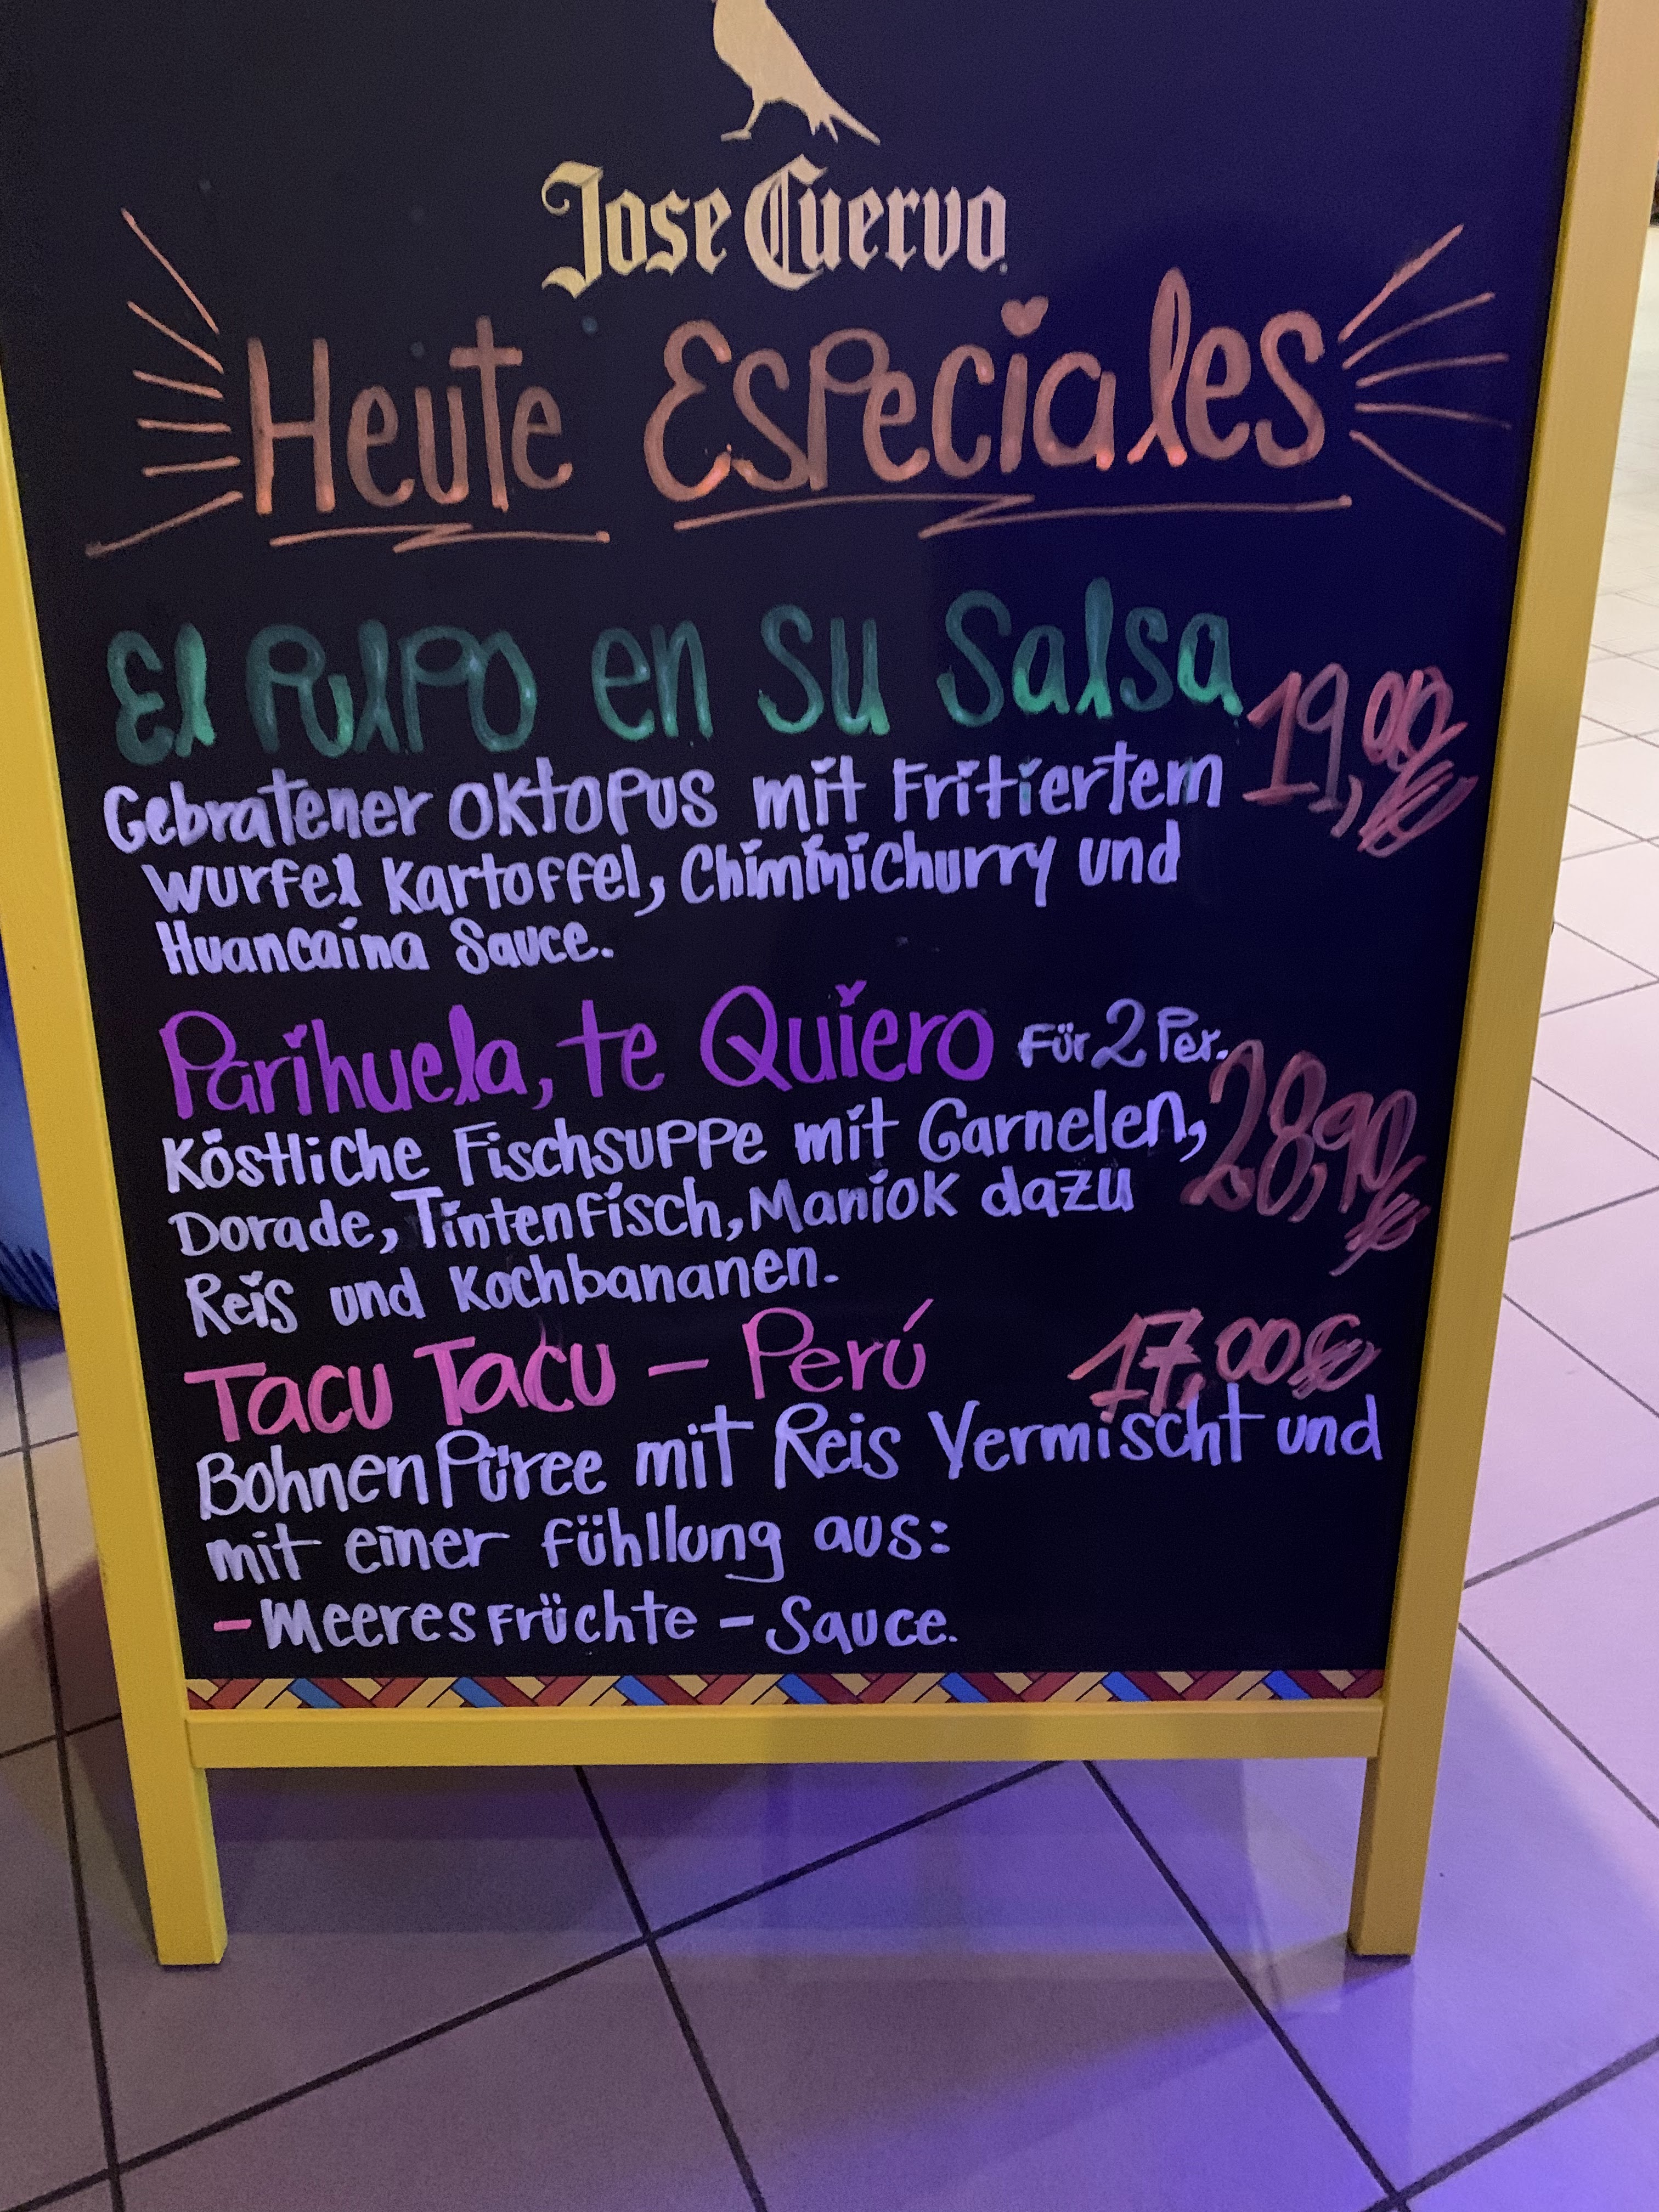 Jose Cuervo
Heute Especiales
El Pulpo en su Salsa
19,00€
Gebratener Oktopus mit Fritiertem
Würfel Kartoffel, Chimmichurry und
Huancaina Sauce.
Parihuela, te Quiero Für 2 Per.
28,90€
Köstliche Fischsuppe mit Garnelen,
Dorade, Tintenfisch, Maniok dazu
Reis und Kochbananen.
Tacu Tacu - Perú 17,00€
Bohnen Püree mit Reis Vermischt und
mit einer fühllung aus:
- Meeres Früchte - Sauce.